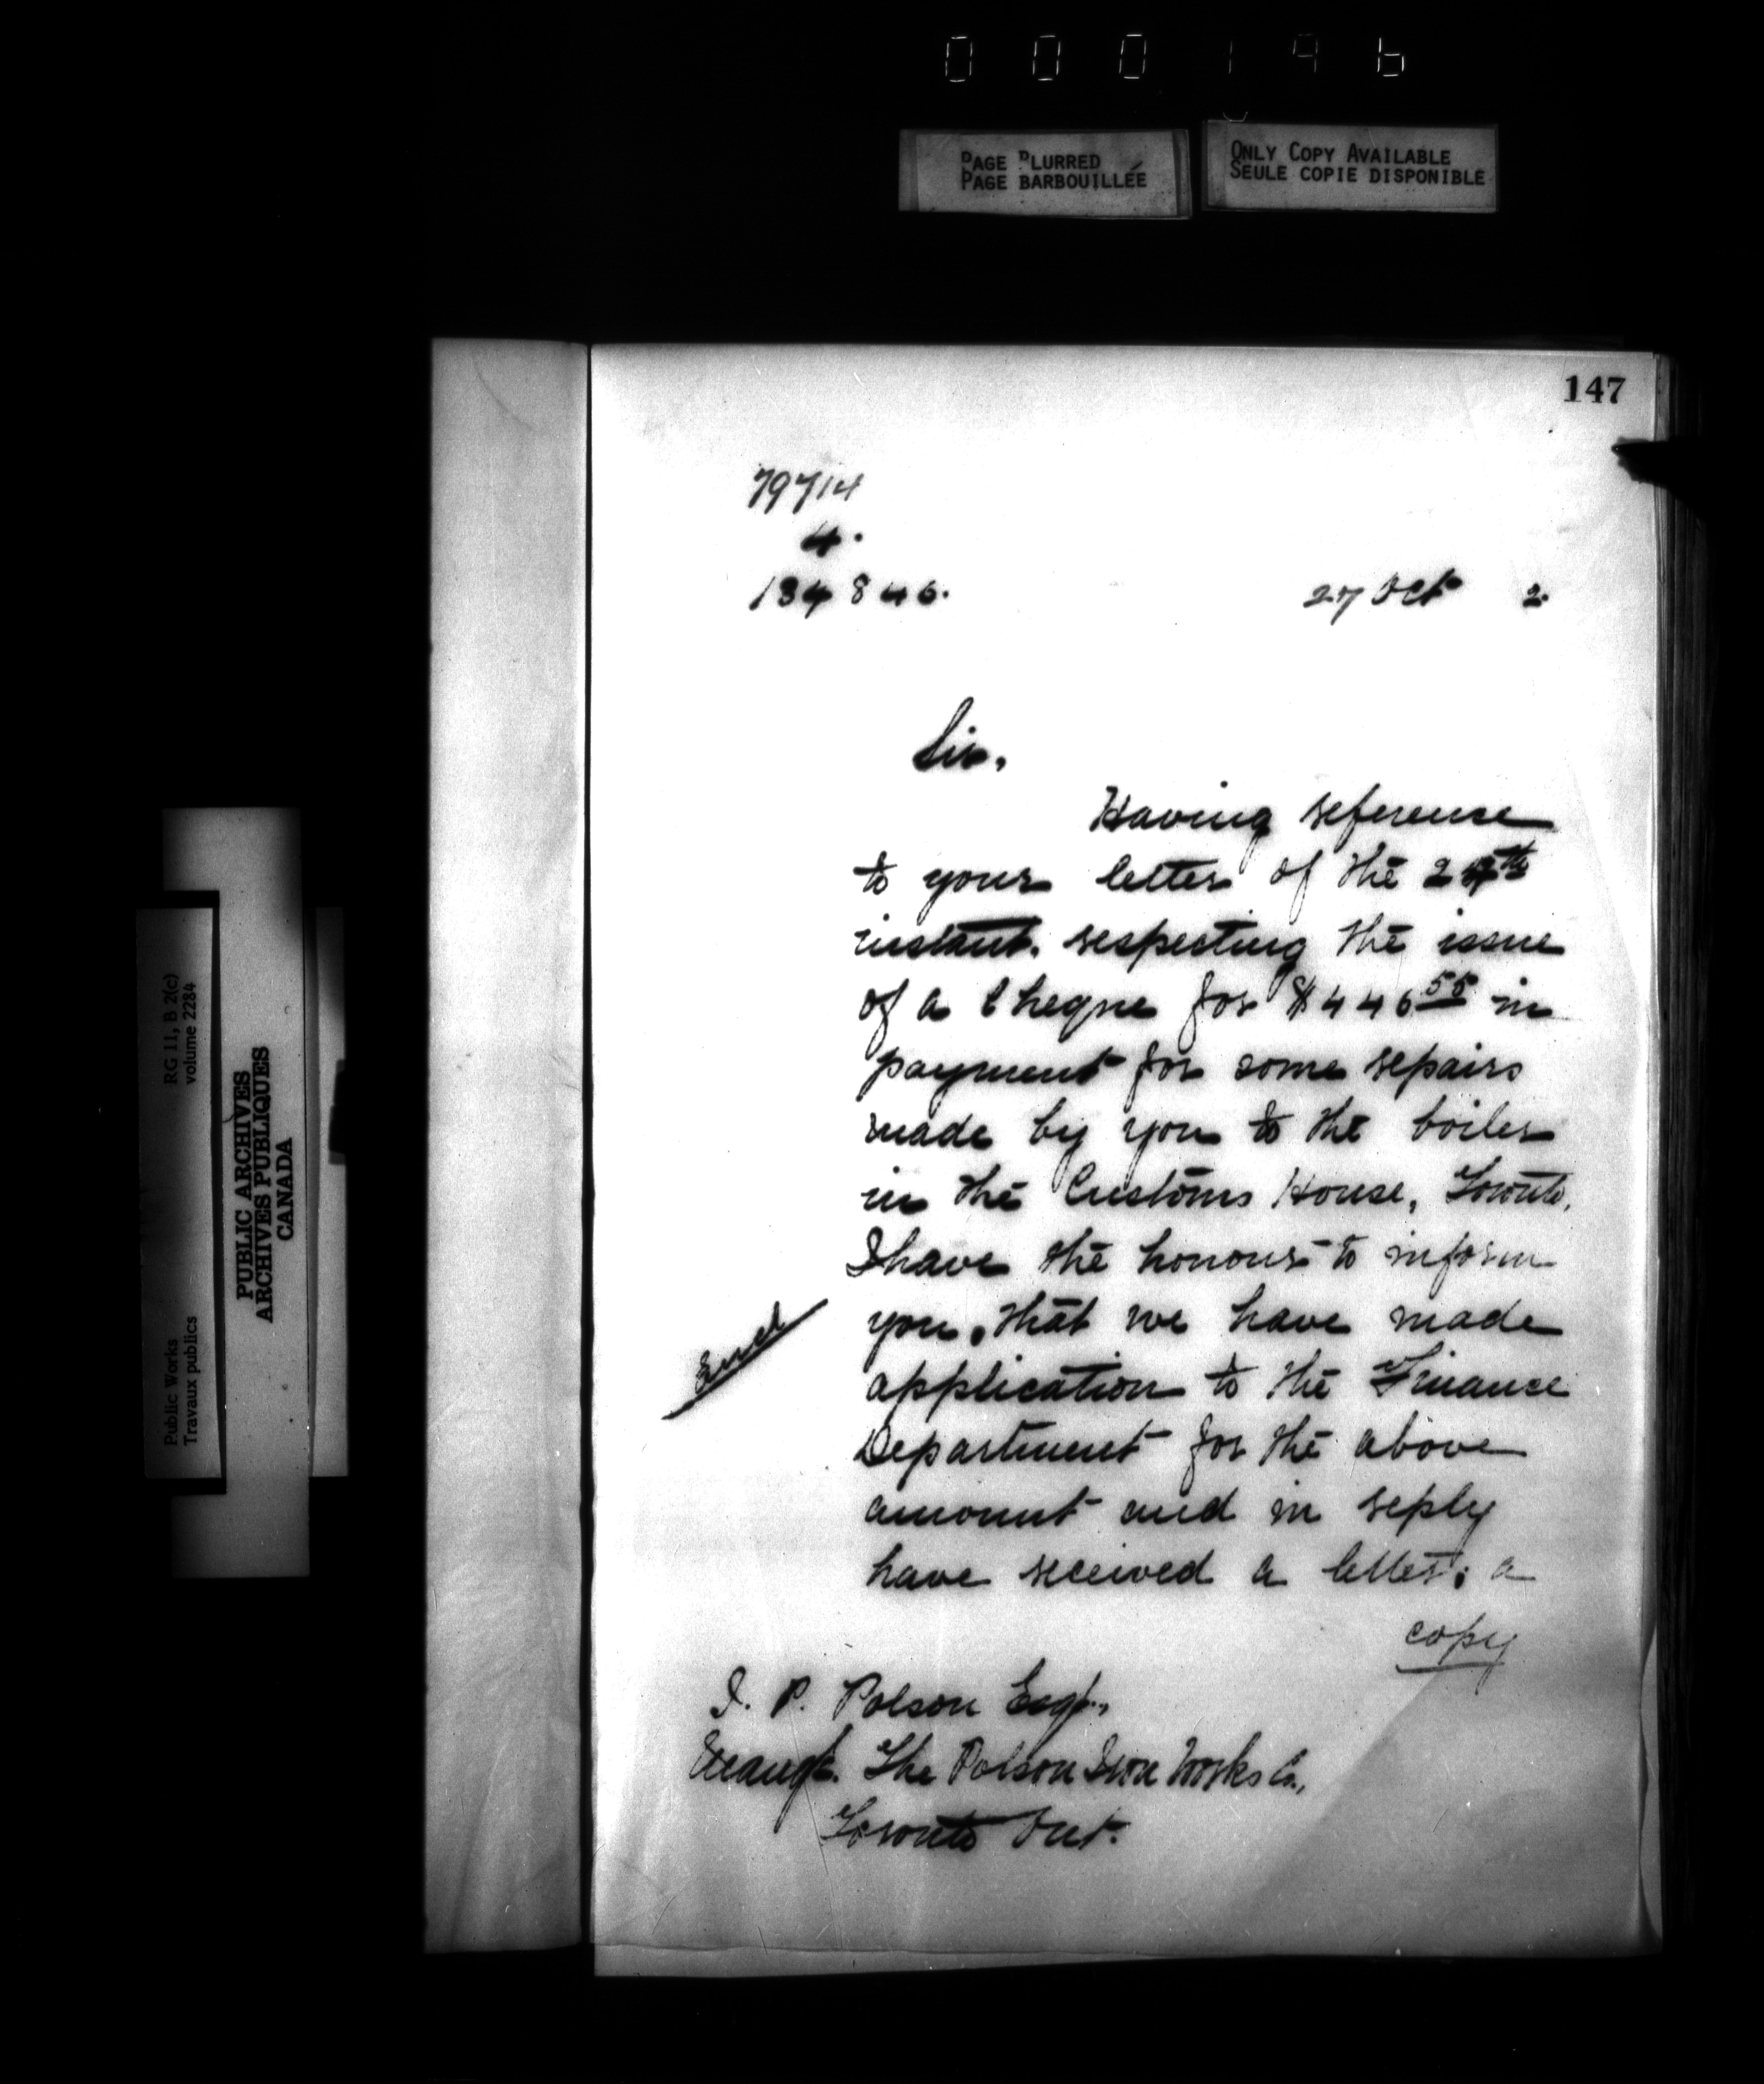 000196
PAGE BLURRED
PAGE BARBOUILLÉE
ONLY COPY AVAILABLE
SEULE COPIE DISPONIBLE
147
79714
4.
134846.
27 Oct 2.
Sir,
Having reference
to your letter of the 24th
instant. respecting the issue
of a Cheque for $446 55 in
payment for some repairs
made by you to the boiler
in the Customs House, Toronto,
I have the honour to inform
you, that we have made
application to the Finance
Department for the above
amount and in reply
have received a letter, a
copy
Encl
J. P. Polson Esqr.,
Mangr. The Polson Iron Works Co.,
Toronto Ont.
RG 11, B 2(c)
volume 2284
Public Works
Travaux publics
PUBLIC ARCHIVES
ARCHIVES PUBLIQUES
CANADA